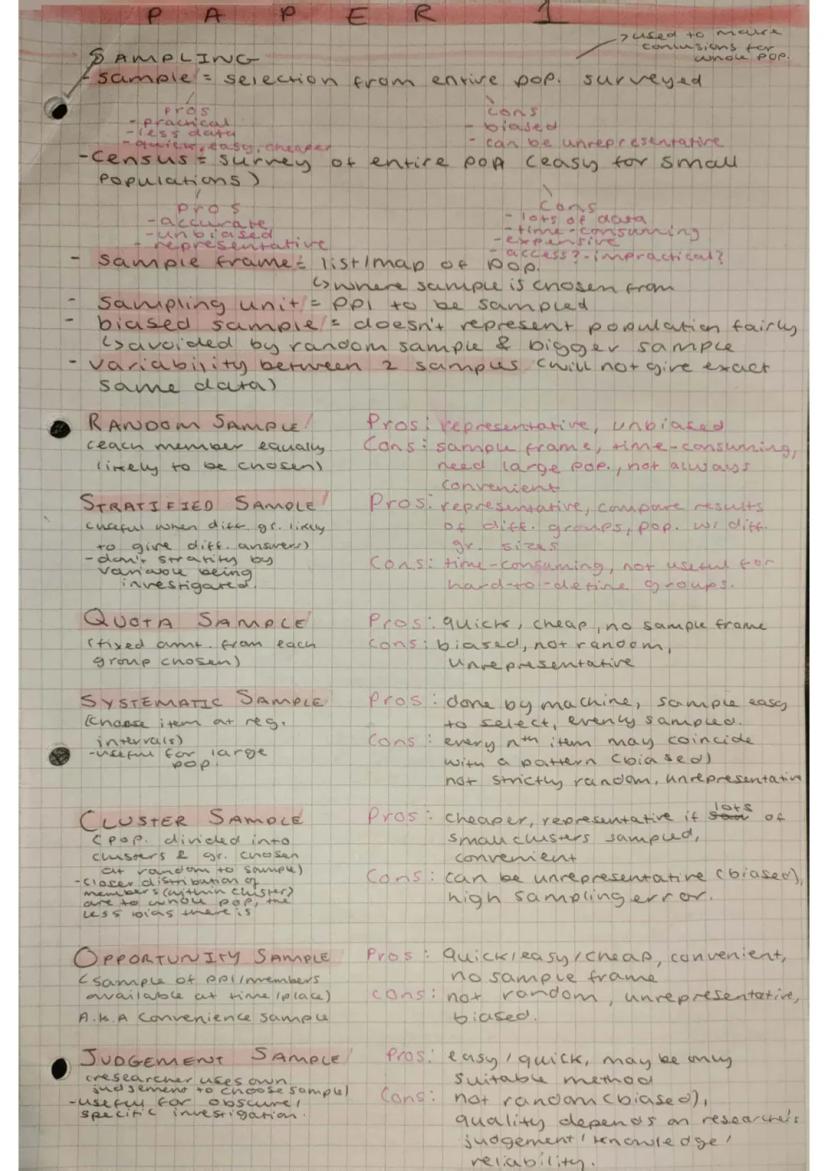 PAPER 1
SAMPLING
↳ used to make
conlusions for
whole pop.
- sample = selection from entire pop. surveyed
Pros
- practical
- less data
- quick, easy, cheaper
Cons
- biased
- can be unrepresentative
- census = survey of entire pop (easy for small
populations)
Pros
- accurate
- unbiased
- representative
Cons
- lots of data
- time-consuming
- expensive
- access? - impractical?
- sample frame = list/map of pop.
↳ where sample is chosen from
- sampling unit = ppl to be sampled
- biased sample = doesn't represent population fairly
↳ avoided by random sample & bigger sample
- variability between 2 samples (will not give exact
same data)
RANDOM SAMPLE
(each member equally
likely to be chosen)
Pros: representative, unbiased
Cons: sample frame, time-consuming,
need large pop., not always
convenient
STRATIFIED SAMPLE
(useful when diff. gr. likely
to give diff. answers)
- don't stratify by
variable being
investigated.
Pros: representative, compare results
of diff. groups, pop. w/ diff.
gr. sizes
Cons: time-consuming, not useful for
hard-to-define groups.
QUOTA SAMPLE
(fixed amt. from each
group chosen)
Pros: quick, cheap, no sample frame
Cons: biased, not random,
unrepresentative
SYSTEMATIC SAMPLE
(choose item at reg.
intervals)
- useful for large
pop.
Pros: done by machine, sample easy
to select, evenly sampled.
Cons: every nth item may coincide
with a pattern (biased)
not strictly random, unrepresentativ
CLUSTER SAMPLE
(pop. divided into
clusters & gr. chosen
at random to sample)
- closer distribution of
members (within cluster)
are to whole pop, the
less bias there is
Pros: cheaper, representative if lots of
small clusters sampled,
convenient
Cons: can be unrepresentative (biased),
high sampling error.
OPPORTUNITY SAMPLE
(sample of ppl/members
available at time/place)
A.K.A Convenience sample
Pros: quick/easy/cheap, convenient,
no sample frame
cons: not random, unrepresentative,
biased.
JUDGEMENT SAMPLE
(researcher uses own
judgement to choose sample)
- useful for obscure/
specific investigation.
Pros: easy/quick, may be only
suitable method
Cons: not random (biased),
quality depends on researcher's
judgement/knowledge/
reliability.